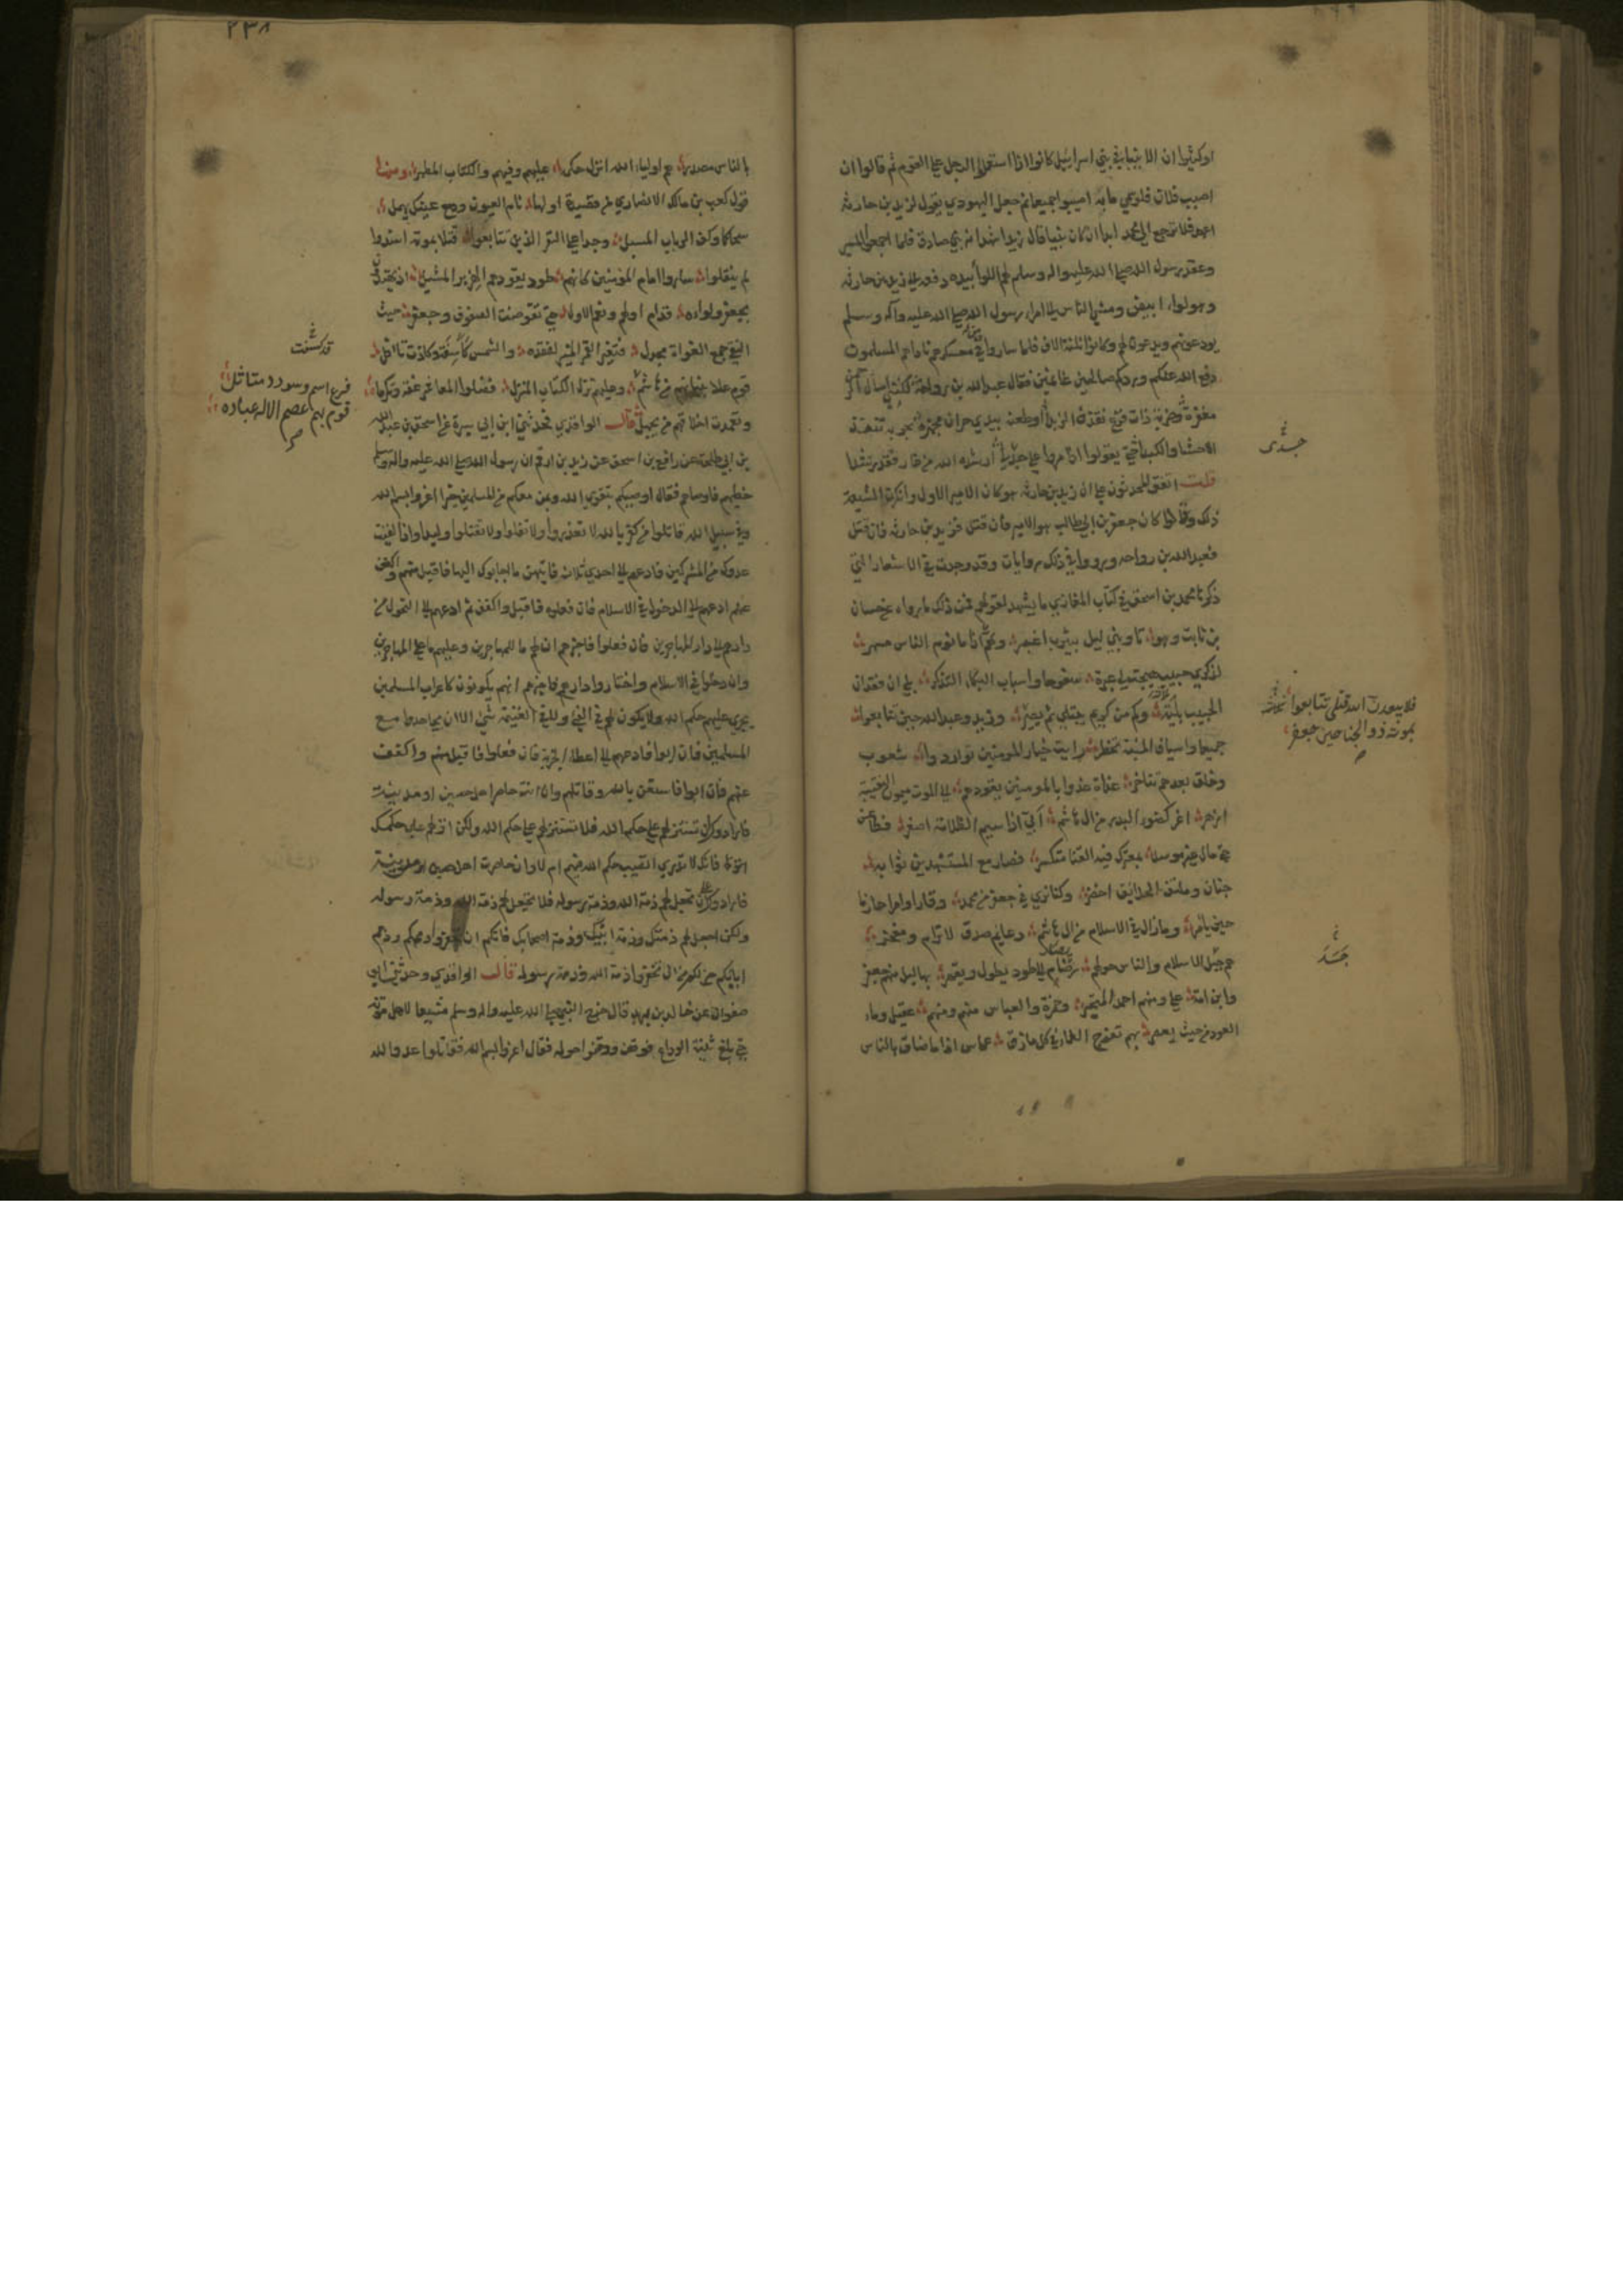 اوكثيرا ان الانبياء في بني اسرائيل كانوا اذا استعملوا الرجل على القوم ثم قالوا ان
اصيب فلان فلو سمي مايه اصيبوا جميعا ثم جعل اليهودي يقول لزيد بن حارثه
اعهد فلا ترجع الى محمد ابدا ان كان نبيا قال زيد اشهد انه نبي صادق فلما اجمعوا المسير
وعقد رسول الله صلى الله عليه واله وسلم لهم اللوا بيده دفعه الى زيد بن حارثه
وهو لواء ابيض ومشى الناس الى امراء رسول الله صلى الله عليه واله وسلم
يودعونهم ويدعون لهم وكانوا ثلثة الاف فلما ساروا في معسكرهم ناداهم المسلمون
دفع الله عنكم وردكم صالحين غانمين فقال عبد الله بن رواحة لكنني اسال الرحمن
مغفرة وضربة ذات فرع تقذف الزبدا او طعنة بيدي حران مجهزة بحربة تنفذ
الاحشاء والكبدا حتى يقولوا اذا مروا على جدثي ارشده الله من غاز فقد رشدا
جسدى
قلت اتفق المحدثون على ان زيد بن حارثه هو كان الامير الاول وانكرت الشيعة
ذلك وقالوا كان جعفر بن ابي طالب هو الامير فان قتل فزيد بن حارثه فان قتل
فعبد الله بن رواحه ورووا في ذلك روايات وقد وجدت في الاشعار التي
ذكرها محمد بن اسحق في كتاب المغازي ما يشهد لقولهم فمن ذلك ما رواه عن حسان
بن ثابت وهو تاوبني ليل بيثرب اعسر وهم اذا ما نوم الناس مسهر
لذكرى حبيب هيجت لي عبرة سفوحا واسباب البكاء التذكر بلى ان فقدان
الحبيب بلية وكم من كريم يبتلى ثم يصبر وزيد وعبد الله حين تتابعوا
فلا يبعدن الله قتلى تتابعوا
بموته ذو الجناحين جعفر
جميعا واسياف المنية تخطر رايت خيار المومنين تواردوا شعوب
وخلق بعدهم يتاخر غداة غدوا بالمومنين يقودهم الى الموت ميمون النقيبة
ازهر اغر كضوء البدر من ال هاشم ابي اذا سيم الظلامة اصعر فطاعن
حتى مال غير موسد بمعترك فيه القنا متكسر فصار مع المستشهدين ثوابه
جنان وملتف الحدائق اخضر وكنا نرى في جعفر من محمد وقارا وامرا حازما
حين يامر وما زال في الاسلام من ال هاشم دعايم صدق لا ترام ومفخر
هم جبل الاسلام والناس حولهم رضام الى طود يطول ويقهر بهاليل منهم جعفر
وابن امه علي ومنهم احمد المتخير وحمزة والعباس منهم ومنهم عقيل وماء
العود من حيث يعصر بهم تفرج الغماء في كل مازق عماس اذا ما ضاق بالناس
٢٣٨
بالناس مصدر هم اولياء الله انزل حكمه عليهم وفيهم والكتاب المطهر ومنها
قول كعب بن مالك الانصاري من قصيدة اولها نام العيون ودمع عينك يهمل
سحا كما وكف الرباب المسبل وجدا على النفر الذين تتابعوا قتلا بموته اسندوا
لم ينقلوا ساروا امام المومنين كانهم طود يقودهم الهزبر المشبل اذ يهتدون
بجعفر ولوائه قدام اولهم ونعم الاول حتى تقوضت الصفوف وجعفر حيث
التقى جمع الغواة مجدل فتغير القمر المنير لفقده والشمس كاسفة وكادت تافل
قد كسفت
قوم علا بنيانهم من هاشم وعليهم نزل الكتاب المنزل فضلوا المعاشر عفة وتكرما
فرع اسم وسودد متاثل
قوم بهم عصم الاله عباده
وتغمدت اخلاقهم من يجهل قالـ الواقدي فحدثني ابن ابي سبرة عن اسحق بن عبد الله
بن ابي طلحة عن رافع بن اسحق عن زيد بن ارقم ان رسول الله صلى الله عليه واله وسلم
خطبهم فاوصاهم فقال اوصيكم بتقوى الله وبمن معكم من المسلمين خيرا اغزوا بسم الله
وفي سبيل الله قاتلوا من كفر بالله لا تغدروا ولا تغلوا ولا تقتلوا وليدا واذا لقيت
عدوك من المشركين فادعهم الى احدى ثلاث فايتهن ما اجابوك اليها فاقبل منهم واكفف
عنهم ادعهم الى الدخول في الاسلام فان فعلوه فاقبل واكفف ثم ادعهم الى التحول من
دارهم الى دار المهاجرين فان فعلوا فاخبرهم ان لهم ما للمهاجرين وعليهم ما على المهاجرين
وان دخلوا في الاسلام واختاروا دارهم فاخبرهم انهم يكونون كاعراب المسلمين
يجري عليهم حكم الله ولا يكون لهم في الفيء ولا في الغنيمة شيء الا ان يجاهدوا مع
المسلمين فان ابوا فادعهم الى اعطاء الجزية فان فعلوا فاقبل منهم واكفف
عنهم فان ابوا فاستعن بالله وقاتلهم وان انت حاصرت اهل حصن او مدينة
فارادوك ان تستنزلهم على حكم الله فلا تستنزلهم على حكم الله ولكن انزلهم على حكمك
فانك لا تدري اتصيب حكم الله فيهم ام لا وان حاصرت اهل حصن او مدينة
فارادوك ان تجعل لهم ذمة الله وذمة رسوله فلا تجعل لهم ذمة الله وذمة رسوله
ولكن اجعل لهم ذمتك وذمة ابيك وذمة اصحابك فانكم ان تخفروا ذممكم وذمم
ابائكم خير لكم من ان تخفروا ذمة الله وذمة رسوله قالـ الواقدي وحدثني ابو
صفوان عن خالد بن يزيد قال خرج النبي صلى الله عليه واله وسلم مشيعا لاهل موتة
حتى بلغ ثنية الوداع فوقف ووقفوا حوله فقال اغزوا بسم الله فقاتلوا عدو الله